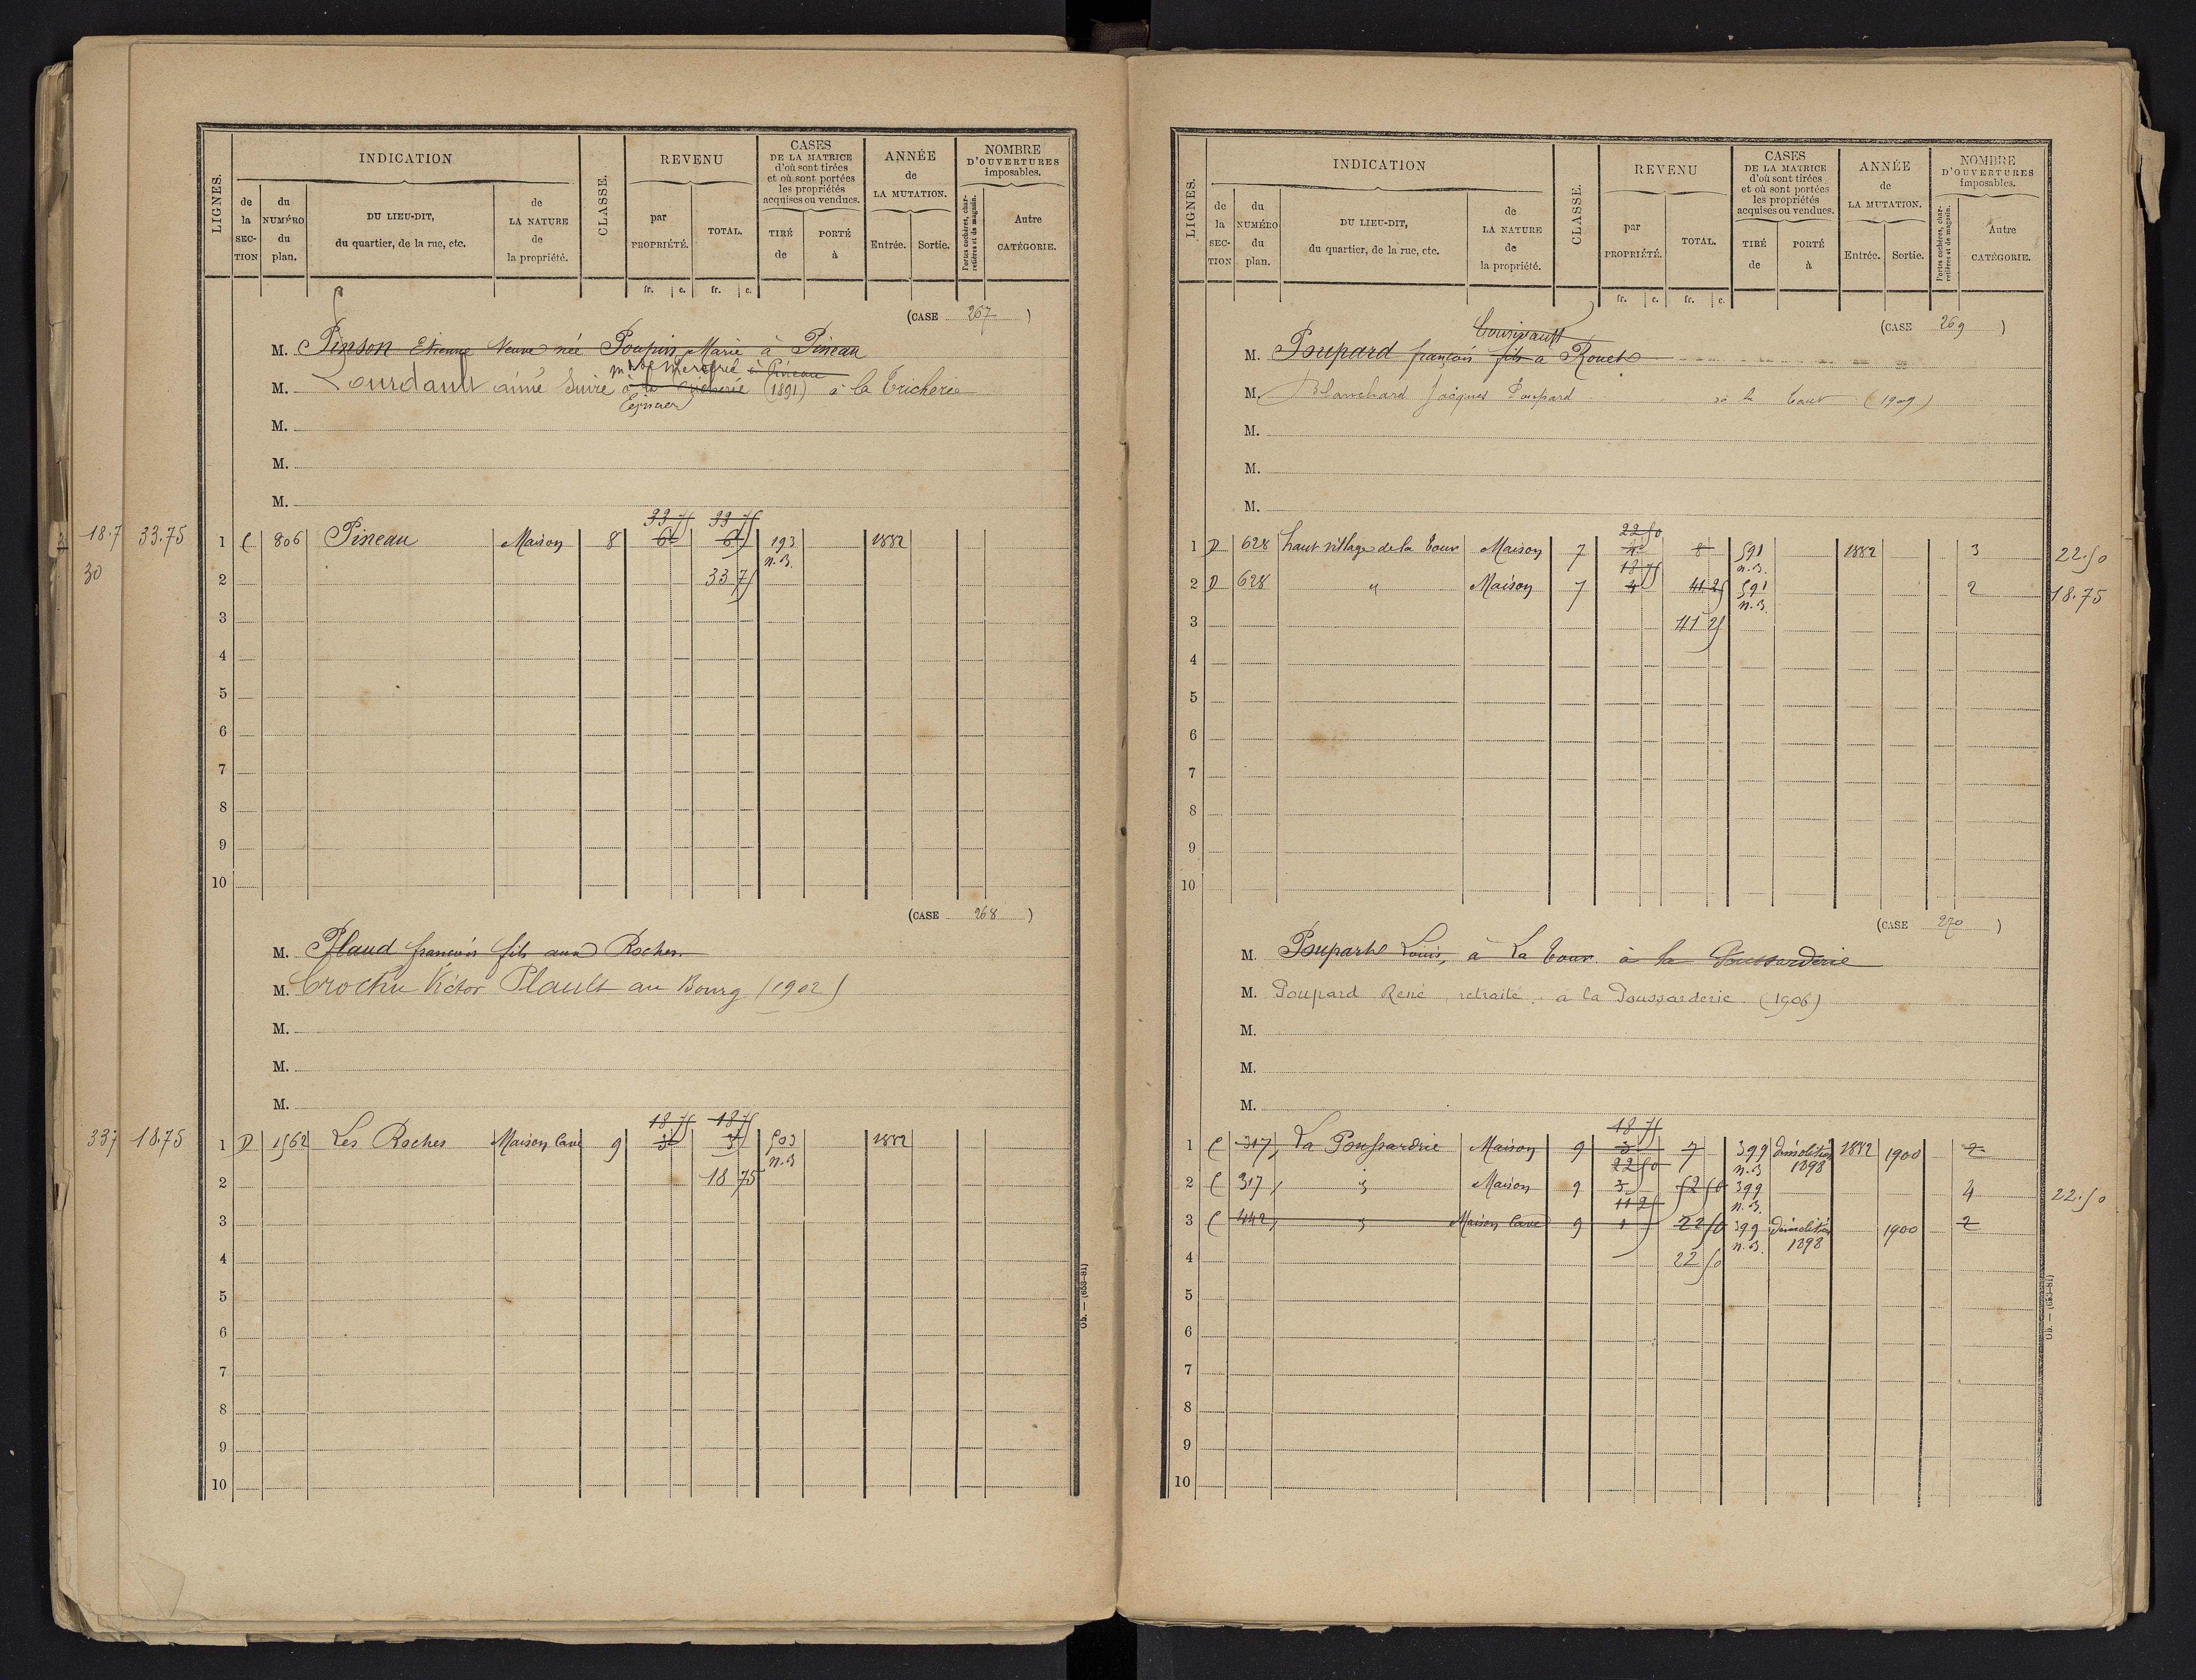 LIGNES.
INDICATION
de la SECTION
du NUMÉRO du plan.
DU LIEU-DIT, du quartier, de la rue, etc.
de LA NATURE de la propriété.
CLASSE.
REVENU
par PROPRIÉTÉ.
TOTAL.
fr. c. fr. c.
CASES DE LA MATRICE d'où sont tirées et où sont portées les propriétés acquises ou vendues.
TIRÉ de
PORTÉ à
ANNÉE de LA MUTATION.
Entrée. Sortie.
NOMBRE D'OUVERTURES imposables.
Portes cochères, charretières et de magasin.
Autre CATÉGORIE.
(CASE 267)
M. Pinson Etienne Veuve née Poupin Marie à Pineau
M. Lourdault aimé Suire à la Tricherie (1891) à la Tricherie
à Pineau
M.
M.
M.
18.7 33.75
30
33 75 33 75
1 C 806 Pineau Maison 8 6 6 193 n.B. 1882
2 33 75
3
4
5
6
7
8
9
10
(CASE 268)
M. Plaud françois fils aux Roches
M. Crochu Victor Plault au Bourg (1902)
M.
M.
M.
337 18.75
18 75 18 75
1 D 1562 Les Roches Maison Cave 9 3 3 503 n.B 1882
2 18 75
3
4
5
6
7
8
9
10
Ob. — (653-81)
LIGNES.
INDICATION
de la SECTION
du NUMÉRO du plan.
DU LIEU-DIT, du quartier, de la rue, etc.
de LA NATURE de la propriété.
CLASSE.
REVENU
par PROPRIÉTÉ.
TOTAL.
fr. c. fr. c.
CASES DE LA MATRICE d'où sont tirées et où sont portées les propriétés acquises ou vendues.
TIRÉ de
PORTÉ à
ANNÉE de LA MUTATION.
Entrée. Sortie.
NOMBRE D'OUVERTURES imposables.
Portes cochères, charretières et de magasin.
Autre CATÉGORIE.
(CASE 269)
M. Poupard françois fils a Rouet
M. Blanchard Jacques Poupard à la tour (1909)
M.
M.
M.
22 50
1 D 628 haut village de la tour Maison 7 4 8 591 n.B. 1882 3 22.50
18 75
2 D 628 " Maison 7 4 41 25 591 n.B. 2 18.75
3 41 25
4
5
6
7
8
9
10
(CASE 270)
M. Poupard Louis, à La tour à la Poussarderie
M. Poupard René, retraité, à la Poussarderie (1906)
M.
M.
M.
18 75
1 C 317 La Poussardrie Maison 9 3 7 399 n.B démolition 1898 1882 1900 2
22 50
2 C 317 Maison 9 3 52 50 399 n.B. 4 22.50
11 25
3 C 442 Maison Cave 9 1 22 50 399 n.B. démolition 1898 1900 2
4 22 50
5
6
7
8
9
10
Ob. — (653-81)